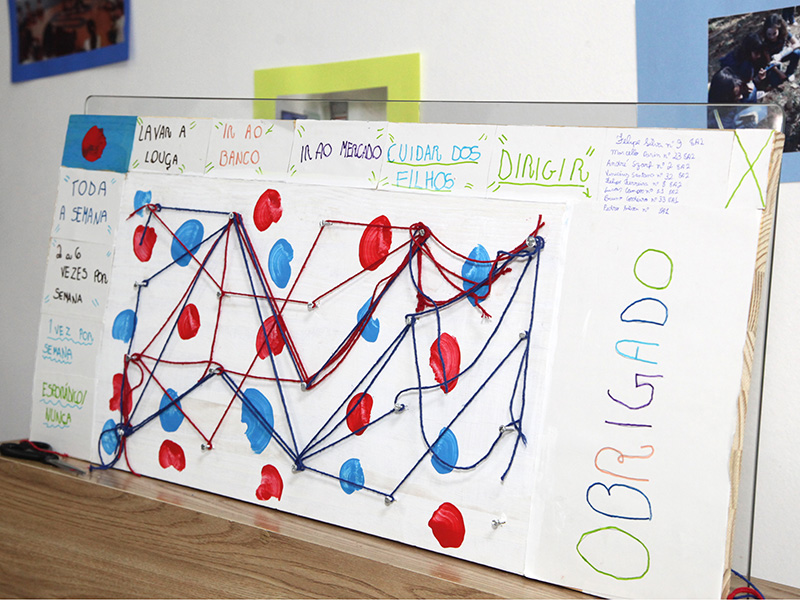 LAVAR A
LOUÇA
IR AO
BANCO
IR AO MERCADO
CUIDAR DOS
FILHOS
DIRIGIR
TODA
A SEMANA
2 ou 6
VEZES POR
SEMANA
1 VEZ POR
SEMANA
ESPORÁDICO/
NUNCA
OBRIGADO